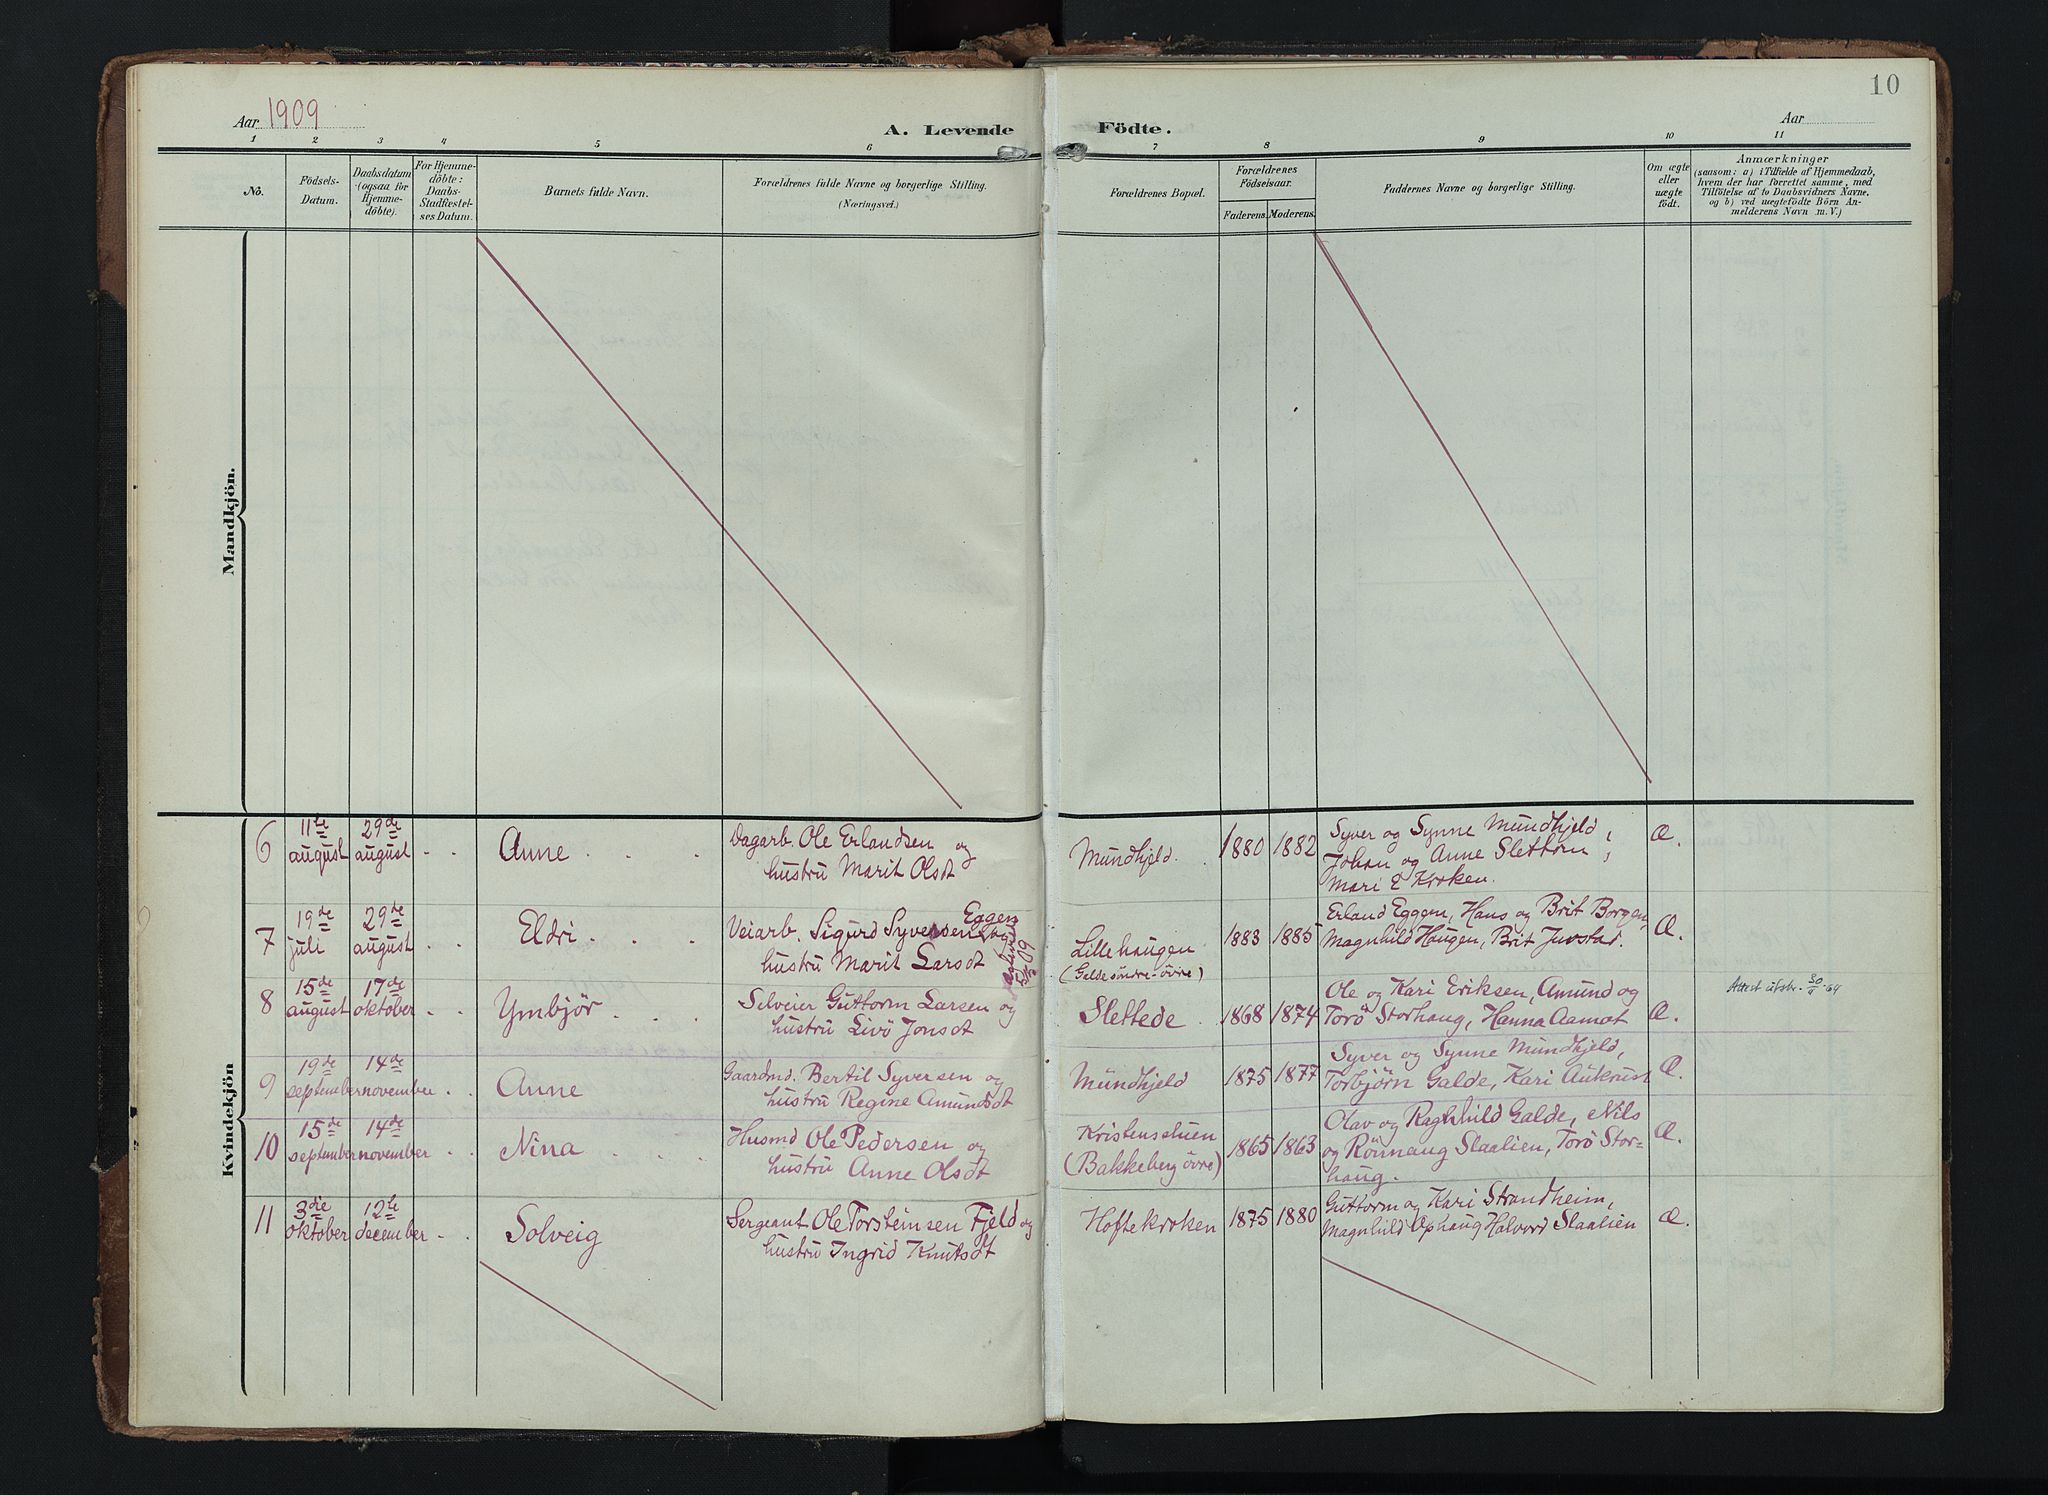 10
Aar 1909
A. Levende Födte.
Aar
1 2 3 4 5 6 7 8 9 10 11
No.
Födsels-
Datum.
Daabsdatum
(ogsaa for
Hjemme-
döbte).
For Hjemme-
döbte:
Daabs-
Stadfæstel-
ses Datum.
Barnets fulde Navn.
Forældrenes fulde Navne og borgerlige Stilling.
(Næringsvei.)
Forældrenes Bopæl.
Forældrenes
Födselsaar.
Faderens. Moderens.
Faddernes Navne og borgerlige Stilling.
Om ægte
eller
uægte
födt.
Anmærkninger
(saasom: a) i Tilfælde af Hjemmedaab,
hvem der har forrettet samme, med
Tilföielse af to Daabsvidners Navne,
og b) ved uægtefödte Börn An-
melderens Navn m. V.)
Mandkjön.
Kvindekjön
6
11te
august
29de
august
Anne
Dagarb. Ole Erlandsen og
hustru Marit Olsdt
Mundhjeld
1880 1882
Syver og Synne Mundhjeld,
Johan og Anne Slettom,
Mari E Kroken.
Æ.
7
19de
juli
29de
august
Eldri
Eggen
Veiarb. Sigurd Syversen og
hustru Marit Larsdt
Lillehaugen
(Galde søndre-øvre)
1883 1885
Erland Eggen, Hans og Brit Borgen,
Magnhild Haugen, Brit Juvstad.
Æ.
8
15de
august
17de
oktober
Ymbjör
Selveier Guttorm Larsen og
hustru Livö Jonsdt
Slettede
1868 1874
Ole og Kari Eriksen, Amund og
Torö Storhaug, Hanna Aamot
Æ.
Attest utstr. 30/4-64
9
19de
september
14de
november
Anne
Gaardmd. Bertil Syversen og
hustru Regine Amundsdt
Mundhjeld
1875 1877
Syver og Synne Mundhjeld,
Torbjörn Galde, Kari Aukrust
Æ.
10
15de
september
14de
november
Nina
Husmd Ole Pedersen og
hustru Anne Olsdt
Kristensstuen
(Bakkeberg øvre)
1865 1863
Olav og Ragnhild Galde, Nils
og Rönnaug Slaalien, Torö Stor-
haug.
Æ.
11
3die
oktober
12te
december
Solveig
Sergeant Ole Torsteinsen Fjeld og
hustru Ingrid Knutsdt
Hoftekroken
1875 1880
Guttorm og Kari Strandheim,
Magnhild Ophaug Halvord Slaalien
Æ.